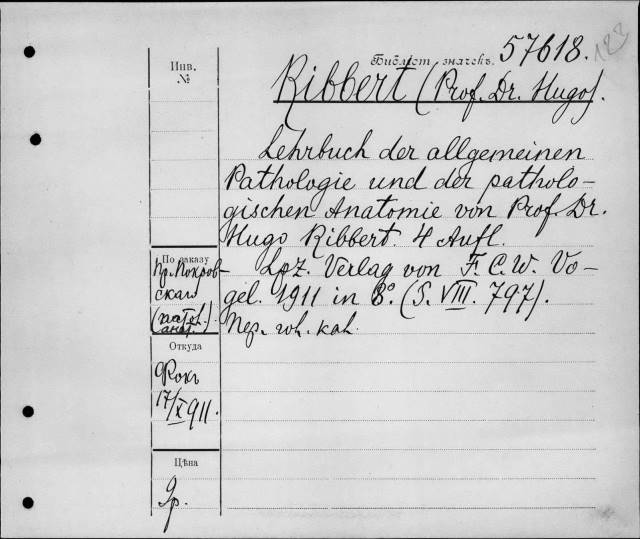 Библіот. значекъ. 57618. 123
Инв.
№
Ribbert (Prof. Dr. Hugo).
Lehrbuch der allgemeinen
Pathologie und der patholo-
gischen Anatomie von Prof. Dr.
Hugo Ribbert. 4 Aufl.
Lpz. Verlag von F. C. W. Vo-
gel. 1911 in 8°. (S. VIII. 797).
Пер. кол. кан.
По заказу
Пр. Покров-
скаго
(патол.
анат.)
Откуда
Фокъ
17/X 911.
Цѣна
9р.